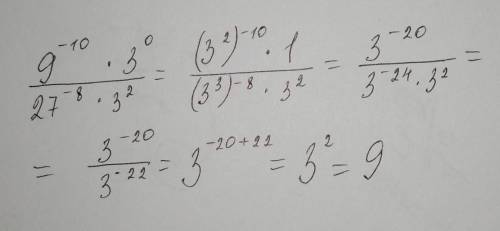 \frac{9^{-10} \cdot 3^{0}}{27^{-8} \cdot 3^{2}} = \frac{(3^{2})^{-10} \cdot 1}{(3^{3})^{-8} \cdot 3^{2}} = \frac{3^{-20}}{3^{-24} \cdot 3^{2}} =
= \frac{3^{-20}}{3^{-22}} = 3^{-20+22} = 3^{2} = 9